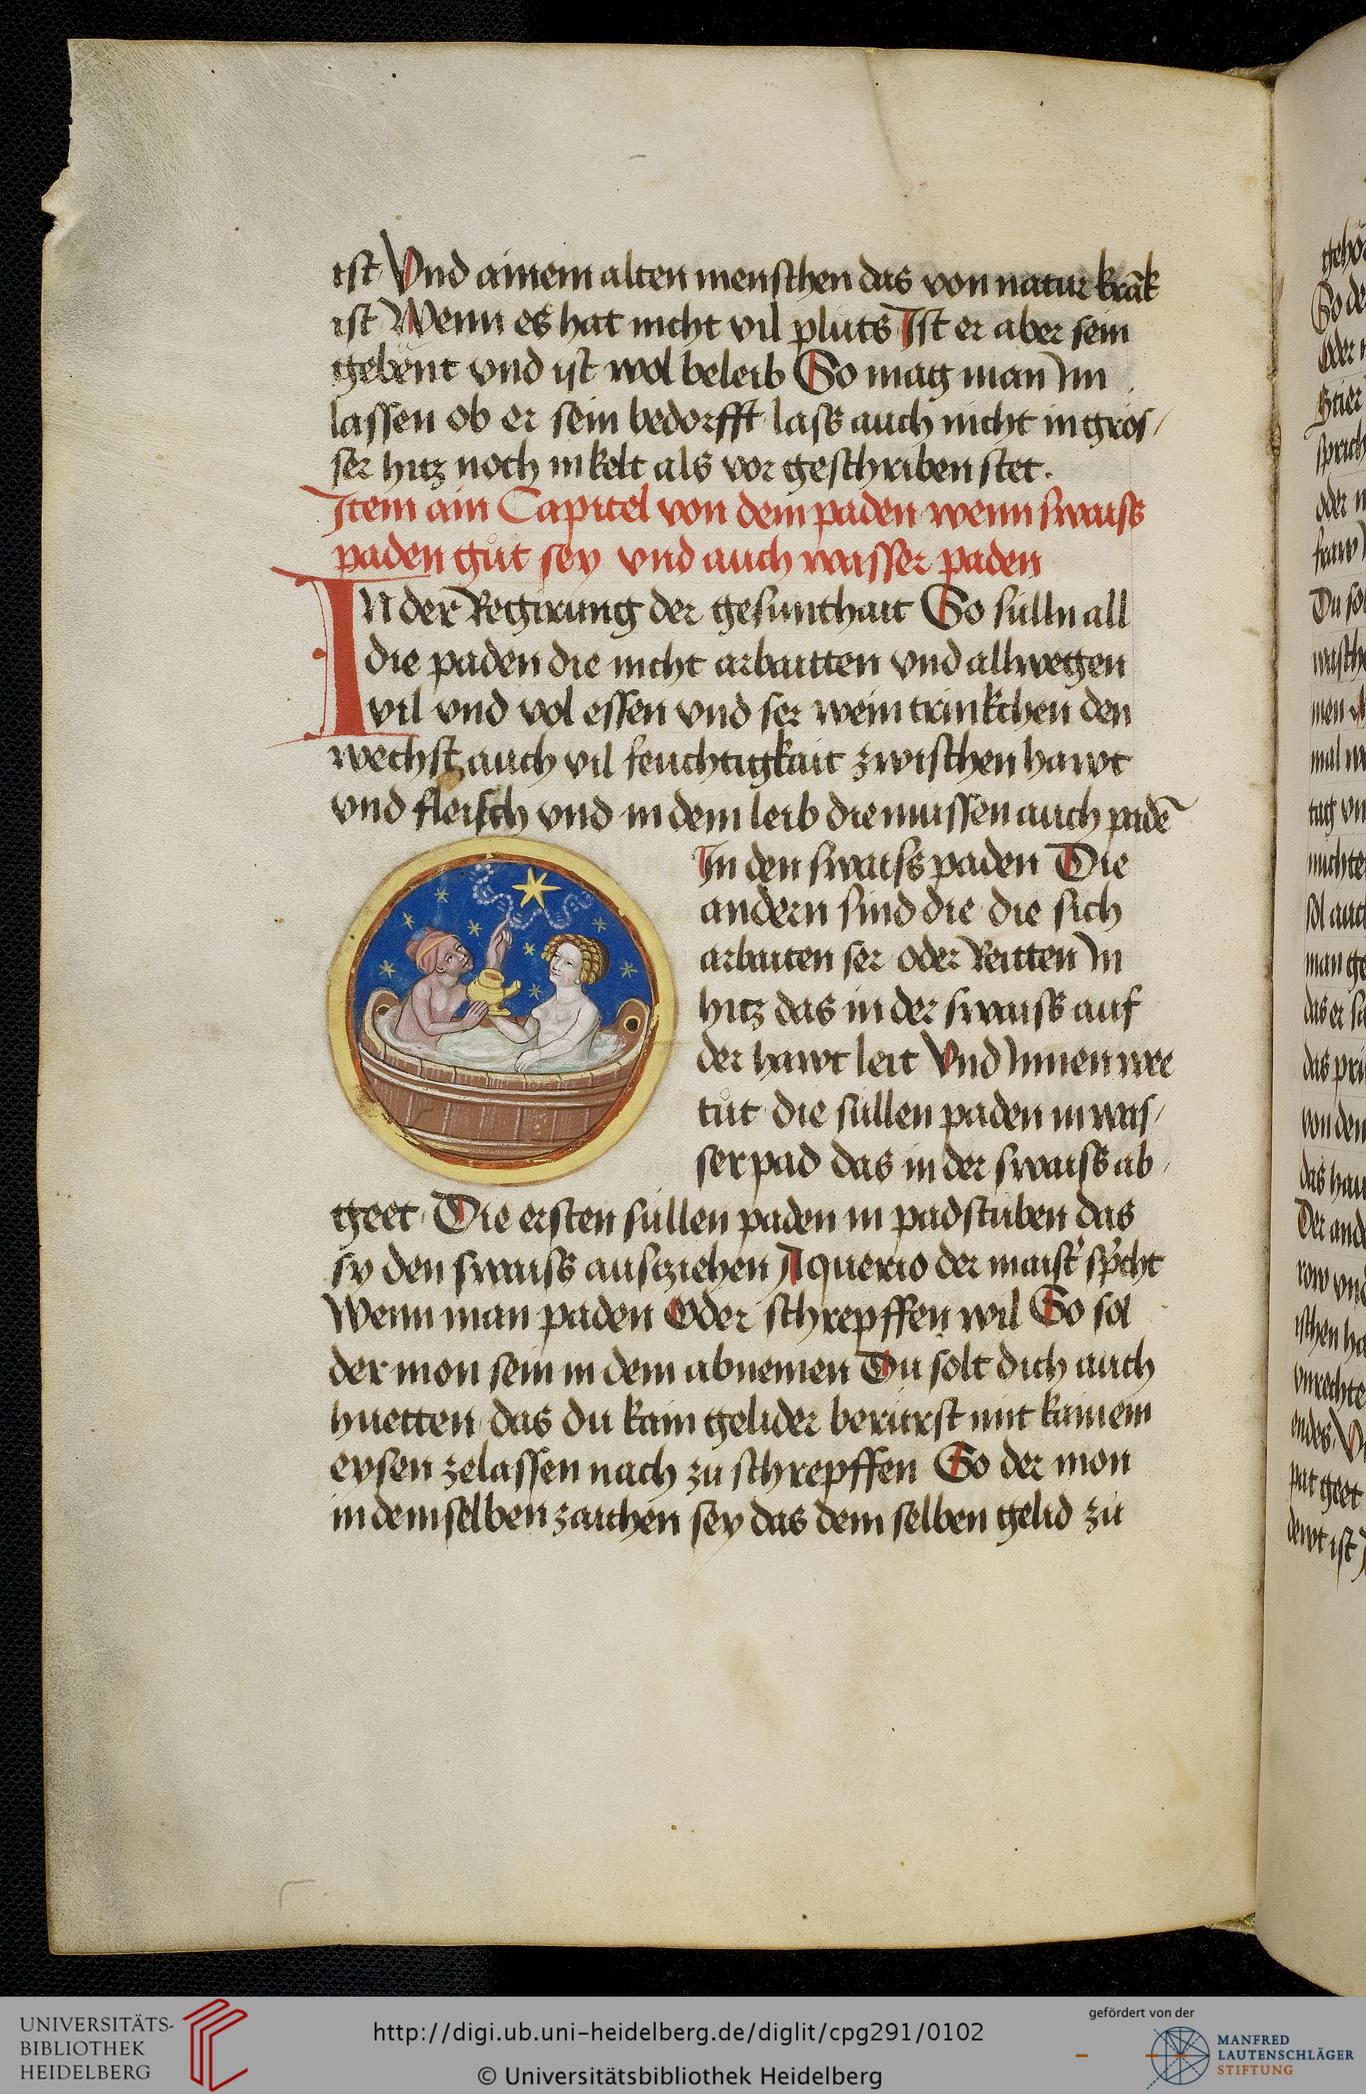 ist Vnd ainem alten menschen das von natur krāk
ist Wenn es hat nicht vil pluts Ist er aber sein
gebent vnd ist wol beleib So mag man Im
lassen ob er sein bedorfft lass auch nicht in gros/
ser hitz noch in kelt als vor geschriben stet.
Item ain Capitel von dem paden wenn swaiss
paden gůt sey vnd auch wasser paden
In der Regirung der gesunthait So sulln all
die paden die nicht arbaitten vnd allwegen
vil vnd vol essen vnd ser wein trinkchen den
wechst auch vil feuchtigkait zwischen hawt
vnd fleisch vnd in dem leib die mussen auch padē
In den swaiss paden Die
andern sind die die sich
arbaiten ser oder Reitten In
hitz das in der swaiss auf
der hawt leit Vnd Innen we
tůt die sullen paden in was/
ser pad das in der swaiss ab/
geet Die ersten sullen paden in padstuben das
sy den swaiss ausziehen Aquerio der maist' sp'cht
Wenn man paden Oder schrepffen wil So sol
der mon sein in dem abnemen Du solt dich auch
huetten das du kain gelider berurst mit kainem
eysen zelassen nach zu schrepffen So der mon
in demselben zaichen sey das dem selben gelid zu
gehö
So de
Oder
Stier
sprich
oder
fraw
Du sol
wasche
men
mal
tag vn
nichte
sol auc
man ge
das er
das pri
von dem
das hau
Der and
row vnd
ischen ha
vnrechte
endes
pat geet
dewt ist
UNIVERSITÄTS-
BIBLIOTHEK
HEIDELBERG
http://digi.ub.uni-heidelberg.de/diglit/cpg291/0102
© Universitätsbibliothek Heidelberg
gefördert von der
MANFRED
LAUTENSCHLÄGER
STIFTUNG